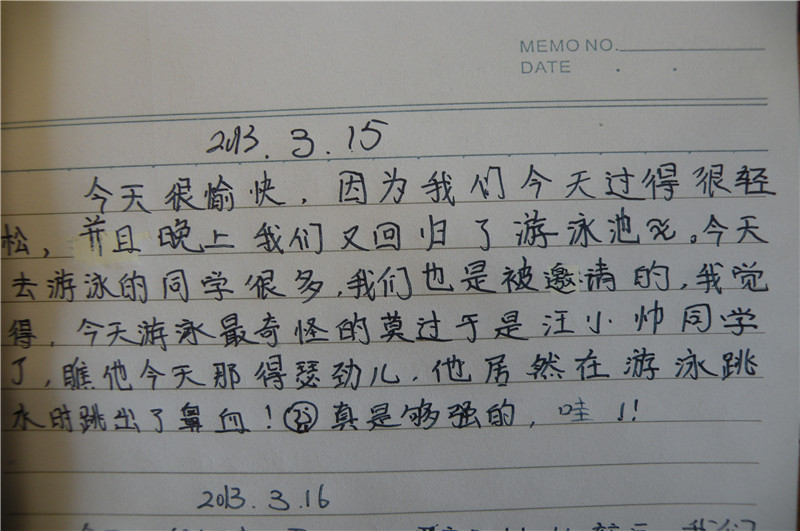 MEMO NO.
DATE . .
2013.3.15
今天很愉快，因为我们今天过得很轻
松，并且晚上我们又回归了游泳池~。今天
去游泳的同学很多，我们也是被邀请的，我觉
得，今天游泳最奇怪的莫过于是汪小帅同学
了，瞧他今天那得瑟劲儿，他居然在游泳跳
水时跳出了鼻血！真是够强的，哇！！
2013.3.16